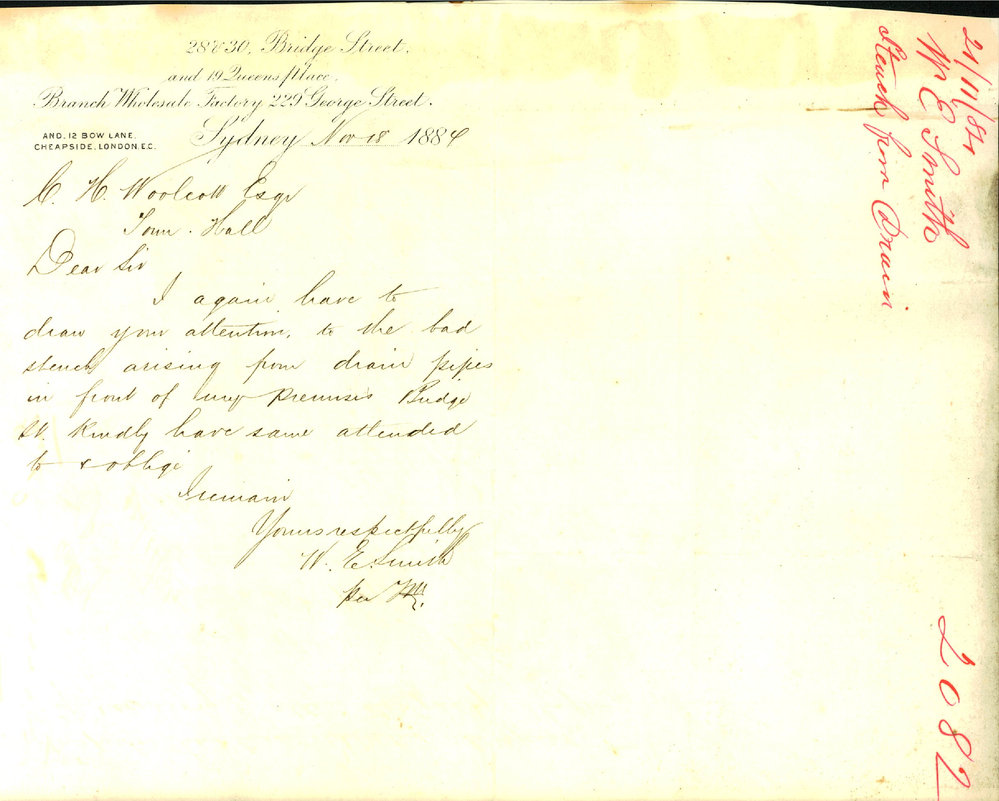 28 & 30, Bridge Street,
and 19 Queens Place,
Branch Wholesale Factory 229 George Street.
AND, 12 BOW LANE,
CHEAPSIDE, LONDON, E.C.
Sydney Nov 18 1884
C. H. Woolcott Esqr
Town Hall
Dear Sir
I again have to
draw your attention, to the bad
stench arising from drain pipes
in front of my premises Bridge
St. Kindly have same attended
to & oblige
I remain
Yours respectfully
W. E. Smith
per
21/11/84
W E Smith
Stench from Drain
2082